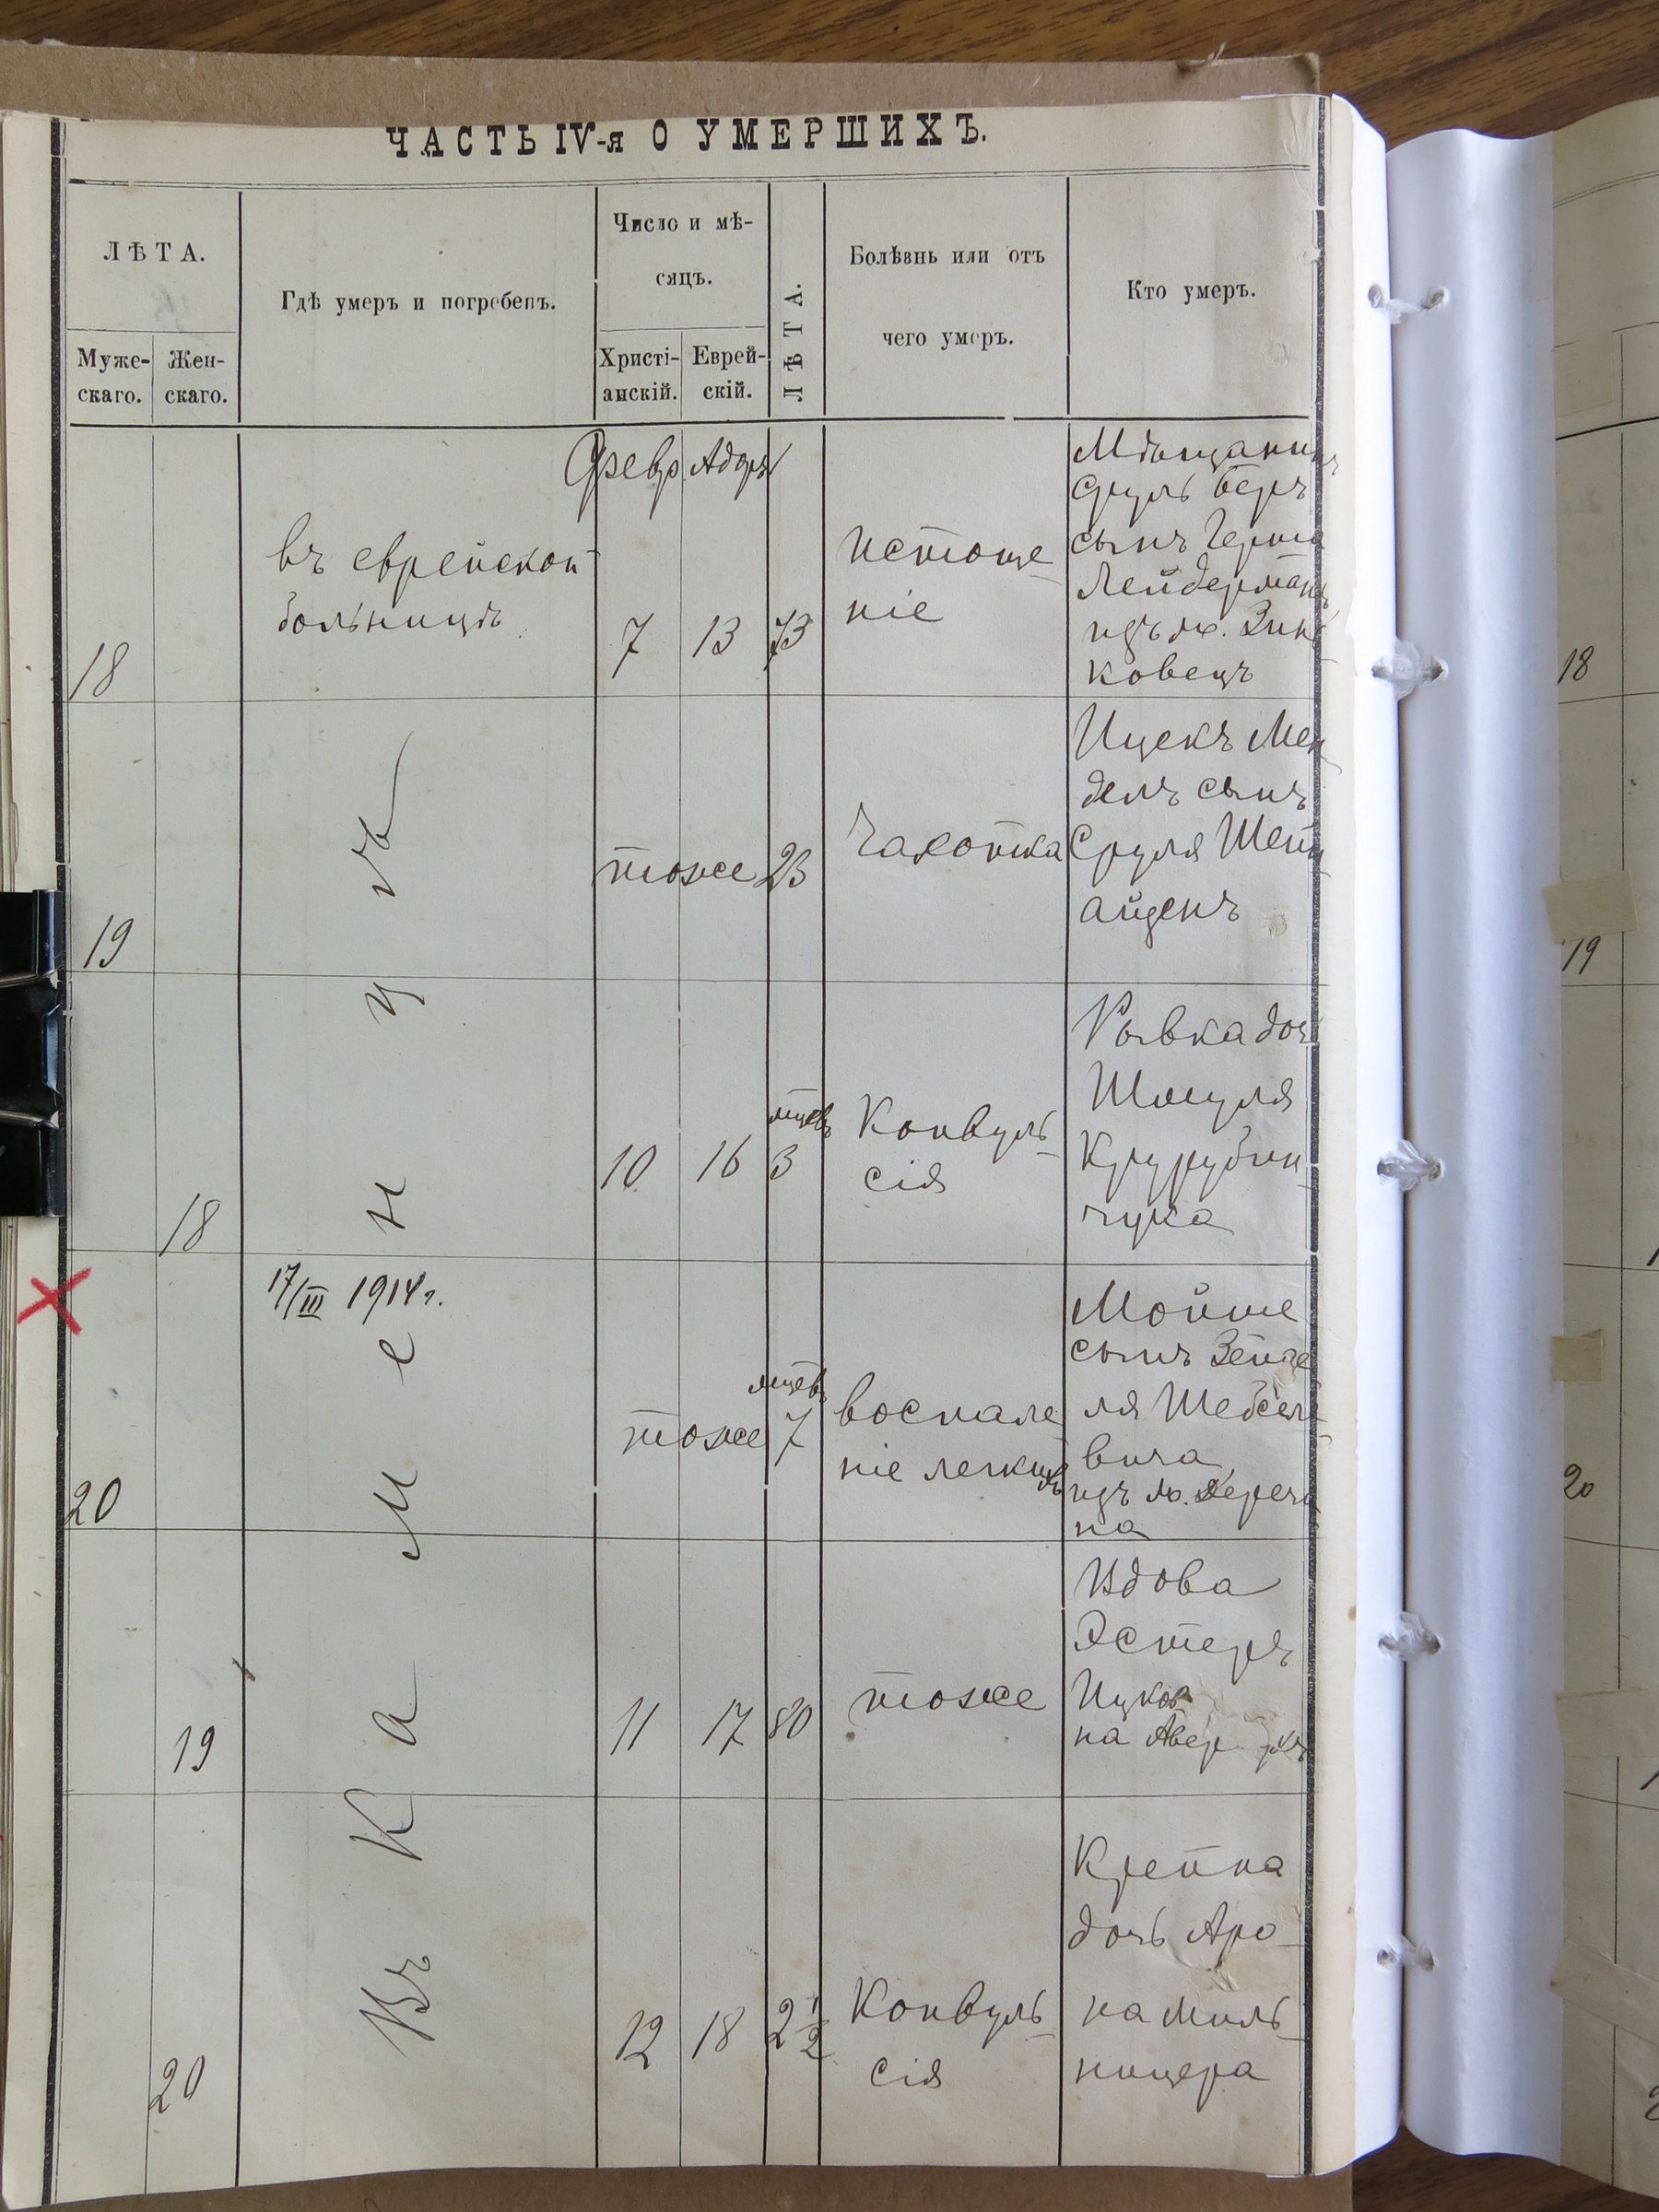 ЧАСТЬ IV-я О УМЕРШИХЪ.
ЛѢТА.
Муже-
скаго.
Жен-
скаго.
Гдѣ умеръ и погребенъ.
Число и мѣ-
сяцъ.
Христі-
анскій.
Еврей-
скій.
ЛѢТА.
Болѣзнь или отъ
чего умеръ.
Кто умеръ.
Февр. Адаръ
18
въ еврейской
больницѣ
7 13 73
истоще-
ніе
Мѣщанинъ
Сруль Беръ
сынъ Герша
Лейдерманъ
изъ м. Зинь
ковецъ
19
тоже 23
Чахотка
Ицекъ Мен
дель сынъ
Сруля
18
10 16
мцев
3
Конвуль-
сія
Рывка доч
Шмуля
чука
20
17/III 1914 г.
тоже
мцев
7
воспале
ніе легкихъ
Мойше
сынъ Зейде
ля Шебсели
вича
изъ м. Дереч
на
19
11 17 80
тоже
Вдова
Эстеръ
Ицков
на
20
12 18 2½
Конвуль-
сія
Крейна
дочь Аро-
на Миль-
ницера
Въ Каменцѣ
18
19
20